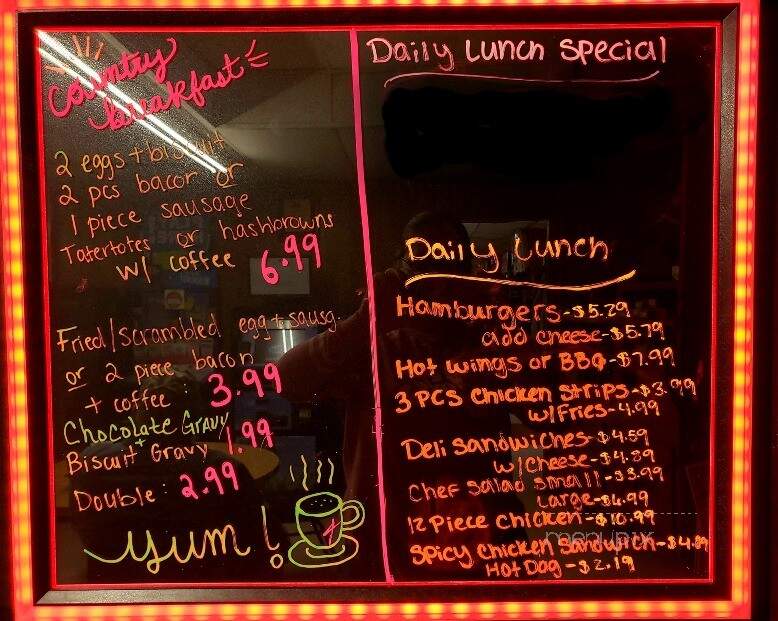 Country
breakfast
2 eggs + biscuit
2 pcs bacon or
1 piece sausage
Tatertotes or hashbrowns
w/ coffee 6.99
Fried/Scrambled egg + sausg.
or 2 piece bacon
+ coffee: 3.99
Chocolate Gravy
Biscuit + Gravy 1.99
Double: 2.99
yum!
Daily Lunch Special
Daily Lunch
Hamburgers-$5.29
add cheese-$5.79
Hot wings or BBQ-$7.99
3 PCS Chicken Strips-$3.99
w/Fries-4.99
Deli Sandwiches-$4.59
w/cheese-$4.89
Chef Salad Small-$3.99
Large-$4.99
12 Piece Chicken-$10.99
Spicy Chicken Sandwich-$4.89
Hot Dog-$2.19
menupix